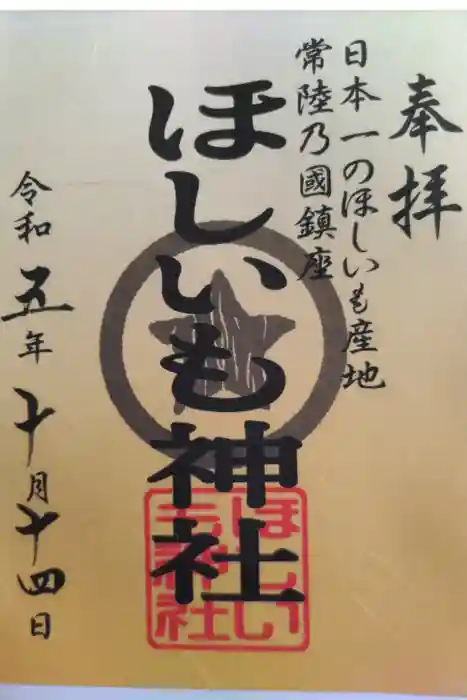 奉拝
日本一のほしいも産地
常陸乃國鎮座
ほしいも神社
ほしい
も神社
令和五年十月十四日